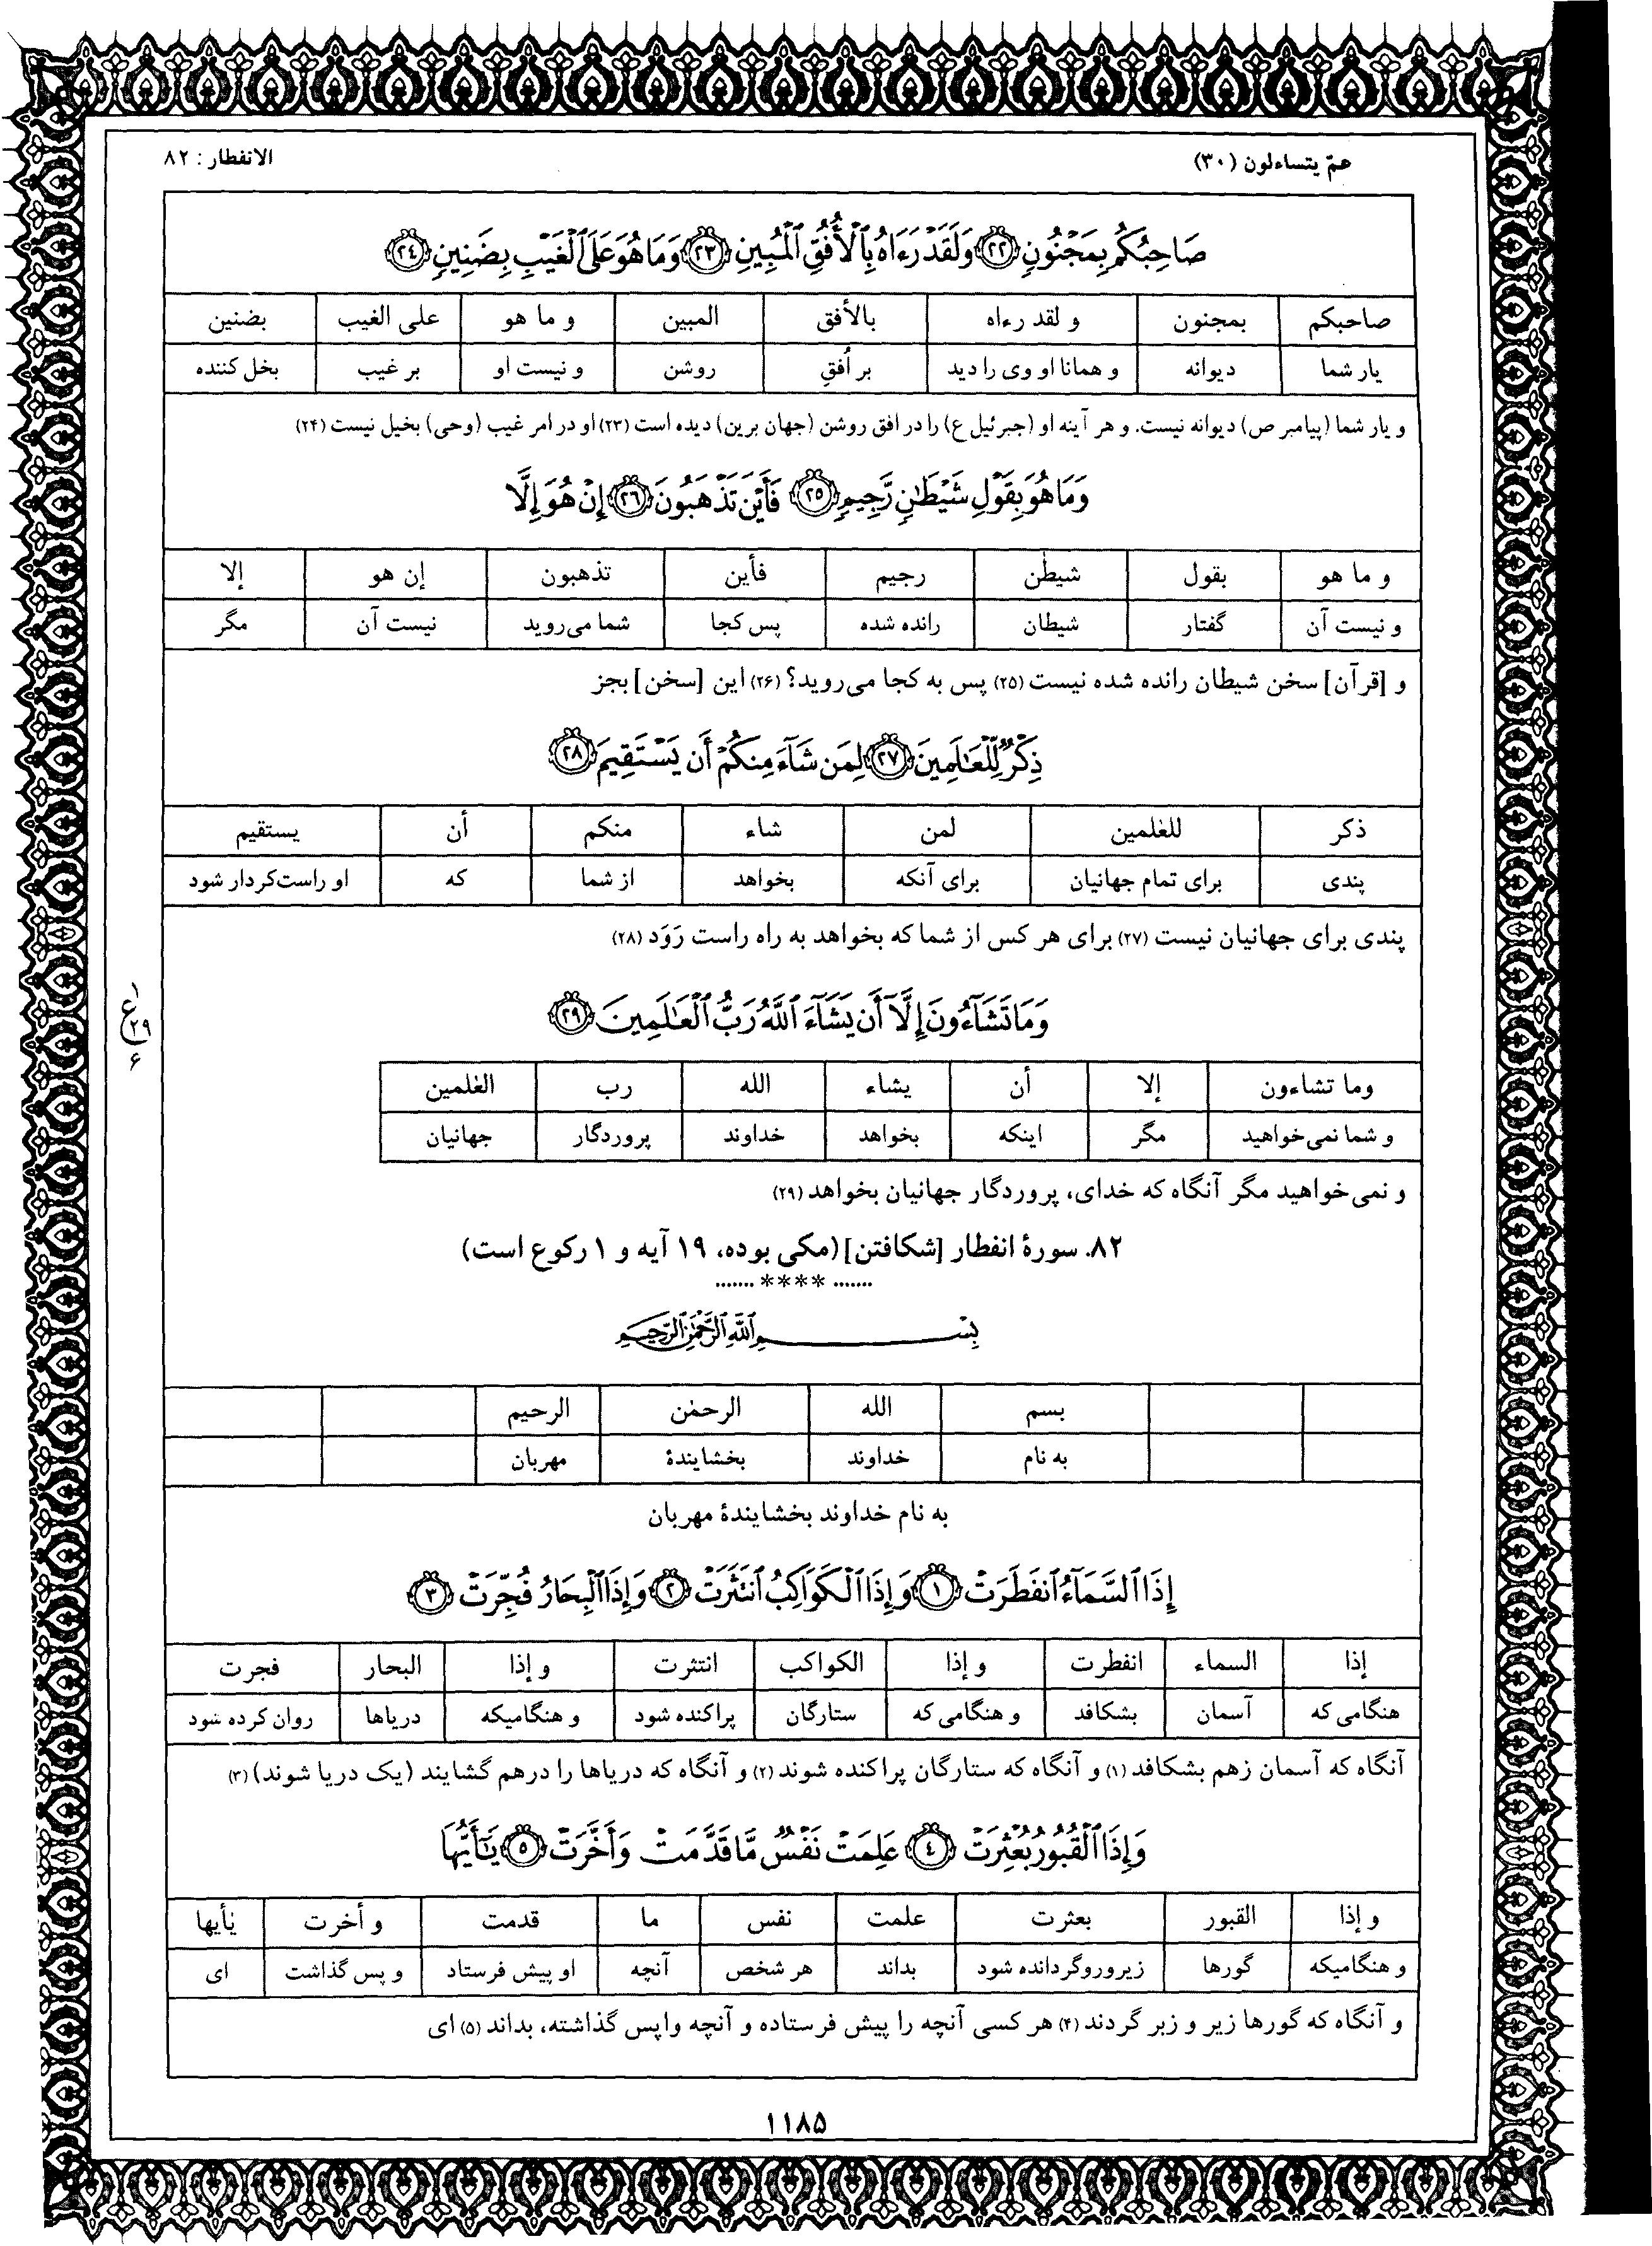 عمّ یتساءلون (۳۰)
الانفطار : ۸۲
صَاحِبُكُم بِمَجْنُونٍ ﴿٢٢﴾ وَلَقَدْ رَءَاهُ بِٱلْأُفُقِ ٱلْمُبِينِ ﴿٢٣﴾ وَمَا هُوَ عَلَى ٱلْغَيْبِ بِضَنِينٍ ﴿٢٤﴾
صاحبکم بمجنون و لقد رءاه بالأفق المبین و ما هو علی الغیب بضنین
یار شما دیوانه و همانا او وی را دید بر اُفقِ روشن و نیست او بر غیب بخل کننده
و یار شما (پیامبر ص) دیوانه نیست. و هر آینه او (جبرئیل ع) را در افق روشن (جهان برین) دیده است (۲۳) او در امر غیب (وحی) بخیل نیست (۲۴)
وَمَا هُوَ بِقَوْلِ شَيْطَٰنٍ رَّجِيمٍ ﴿٢٥﴾ فَأَيْنَ تَذْهَبُونَ ﴿٢٦﴾ إِنْ هُوَ إِلَّا
و ما هو بقول شیطٰن رجیم فأین تذهبون إن هو إلا
و نیست آن گفتار شیطان رانده شده پس کجا شما می‌روید نیست آن مگر
و [قرآن] سخن شیطان رانده شده نیست (۲۵) پس به کجا می‌روید؟ (۲۶) این [سخن] بجز
ذِكْرٌ لِّلْعَٰلَمِينَ ﴿٢٧﴾ لِمَن شَآءَ مِنكُمْ أَن يَسْتَقِيمَ ﴿٢٨﴾
ذکر للعٰلمین لمن شاء منکم أن یستقیم
پندی برای تمام جهانیان برای آنکه بخواهد از شما که او راست‌کردار شود
پندی برای جهانیان نیست (۲۷) برای هر کس از شما که بخواهد به راه راست رَوَد (۲۸)
وَمَا تَشَآءُونَ إِلَّآ أَن يَشَآءَ ٱللَّهُ رَبُّ ٱلْعَٰلَمِينَ ﴿٢٩﴾
وما تشاءون إلا أن یشاء الله رب العٰلمین
و شما نمی‌خواهید مگر اینکه بخواهد خداوند پروردگار جهانیان
و نمی‌خواهید مگر آنگاه که خدای، پروردگار جهانیان بخواهد (۲۹)
۱
ع
۲۹
۶
۸۲. سورهٔ انفطار [شکافتن] (مکی بوده، ۱۹ آیه و ۱ رکوع است)
....... **** .......
بِسْمِ ٱللَّهِ ٱلرَّحْمَٰنِ ٱلرَّحِيمِ
بسم الله الرحمٰن الرحیم
به نام خداوند بخشایندهٔ مهربان
به نام خداوند بخشایندهٔ مهربان
إِذَا ٱلسَّمَآءُ ٱنفَطَرَتْ ﴿١﴾ وَإِذَا ٱلْكَوَاكِبُ ٱنتَثَرَتْ ﴿٢﴾ وَإِذَا ٱلْبِحَارُ فُجِّرَتْ ﴿٣﴾
إذا السماء انفطرت و إذا الکواکب انتثرت و إذا البحار فجرت
هنگامی که آسمان بشکافد و هنگامی که ستارگان پراکنده شود و هنگامیکه دریاها روان کرده شود
آنگاه که آسمان زهم بشکافد (۱) و آنگاه که ستارگان پراکنده شوند (۲) و آنگاه که دریاها را درهم گشایند (یک دریا شوند) (۳)
وَإِذَا ٱلْقُبُورُ بُعْثِرَتْ ﴿٤﴾ عَلِمَتْ نَفْسٌ مَّا قَدَّمَتْ وَأَخَّرَتْ ﴿٥﴾ يَٰٓأَيُّهَا
و إذا القبور بعثرت علمت نفس ما قدمت و أخرت یٰأیها
و هنگامیکه گورها زیروروگردانده شود بداند هر شخص آنچه او پیش فرستاد و پس گذاشت ای
و آنگاه که گورها زیر و زبر گردند (۴) هر کسی آنچه را پیش فرستاده و آنچه واپس گذاشته، بداند (۵) ای
۱۱۸۵